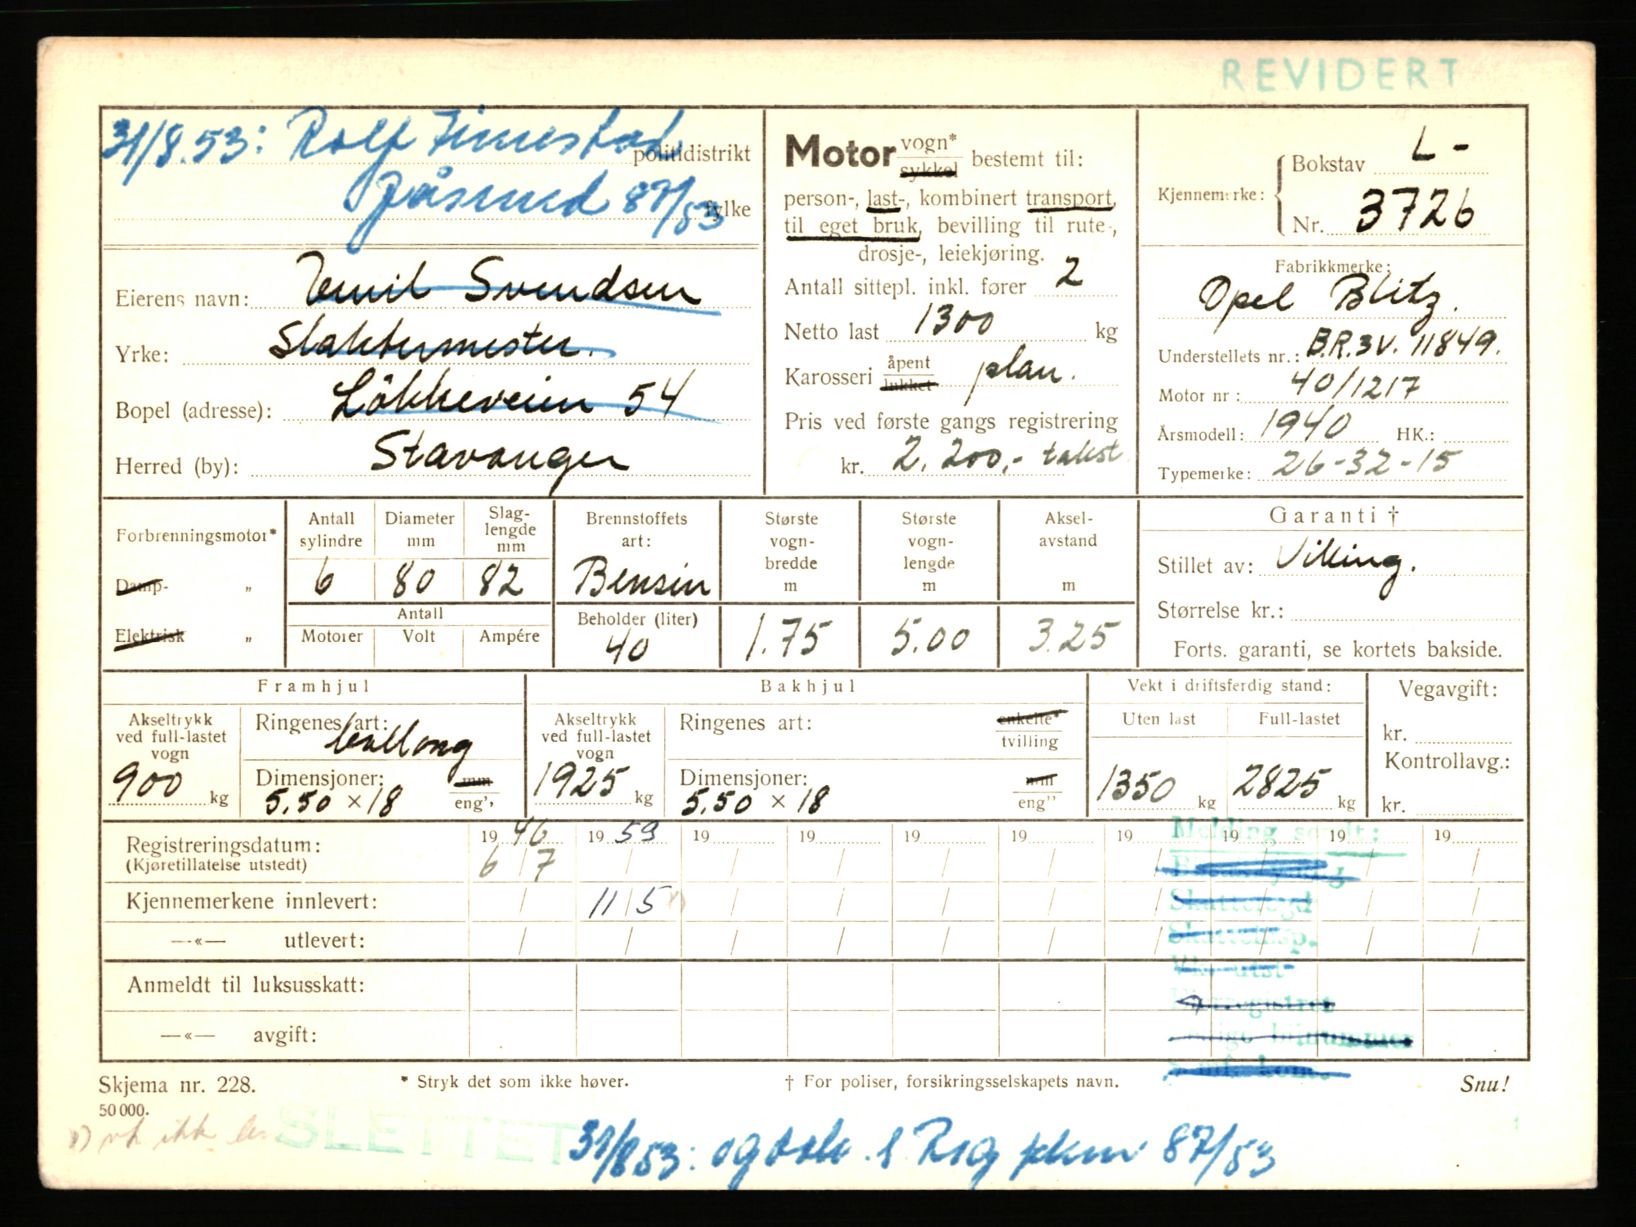 REVIDERT
31/8.53: Rolf Timestad
politidistrikt
87/53
fylke
Eierens navn: Emil Svendsen
Yrke: Slaktermester.
Bopel (adresse): Løkkeveien 54
Herred (by): Stavanger
Motor vogn* sykkel bestemt til:
person-, last-, kombinert transport,
til eget bruk, bevilling til rute-,
drosje-, leiekjøring.
Antall sittepl. inkl. fører 2
Netto last 1300 kg
Karosseri åpent lukket plan.
Pris ved første gangs registrering
kr. 2.200,- takst
Kjennemerke: Bokstav L-
Nr. 3726
Fabrikkmerke:
Opel Blitz.
Understellets nr.: B.R.3V. 11849.
Motor nr: 40/1217
Årsmodell: 1940 HK.:
Typemerke: 26-32-15
Forbrenningsmotor*
Damp- „
Elektrisk „
Antall sylindre 6
Diameter mm 80
Slaglengde mm 82
Antall
Motorer Volt Ampére
Brennstoffets art: Bensin
Beholder (liter) 40
Største vogn-bredde m 1.75
Største vogn-lengde m 5.00
Aksel-avstand m 3.25
Garanti †
Stillet av: Viking.
Størrelse kr.:
Forts. garanti, se kortets bakside.
Framhjul
Akseltrykk ved full-lastet vogn 900 kg
Ringenes art: ballong
Dimensjoner: 5.50 × 18 mm eng''
Bakhjul
Akseltrykk ved full-lastet vogn 1925 kg
Ringenes art: enkelte* tvilling
Dimensjoner: 5.50 × 18 mm eng''
Vekt i driftsferdig stand:
Uten last 1350 kg
Full-lastet 2825 kg
Vegavgift:
kr.
Kontrollavg.:
kr.
Registreringsdatum: 1946 1959 19 19 19 19 19 19 19 19
(Kjøretillatelse utstedt) 6/7
Kjennemerkene innlevert: 11/5
—«— utlevert:
Anmeldt til luksusskatt:
—«— avgift:
Melding sendt:
Skattefogd
Skatteinsp.
Skjema nr. 228.
* Stryk det som ikke høver.
† For poliser, forsikringsselskapets navn.
Snu!
50 000.
SLETTET
31/8 53: 87/53